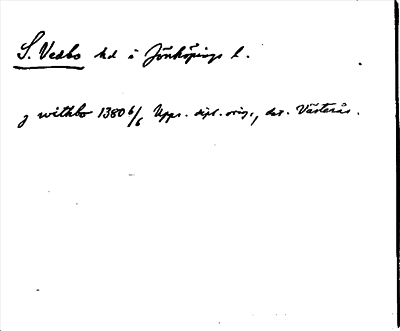 S. Vedbo hd i Jönköpings l.
j withbo 1380 6/6 Upps. dipl. orig., dat. Västerås.